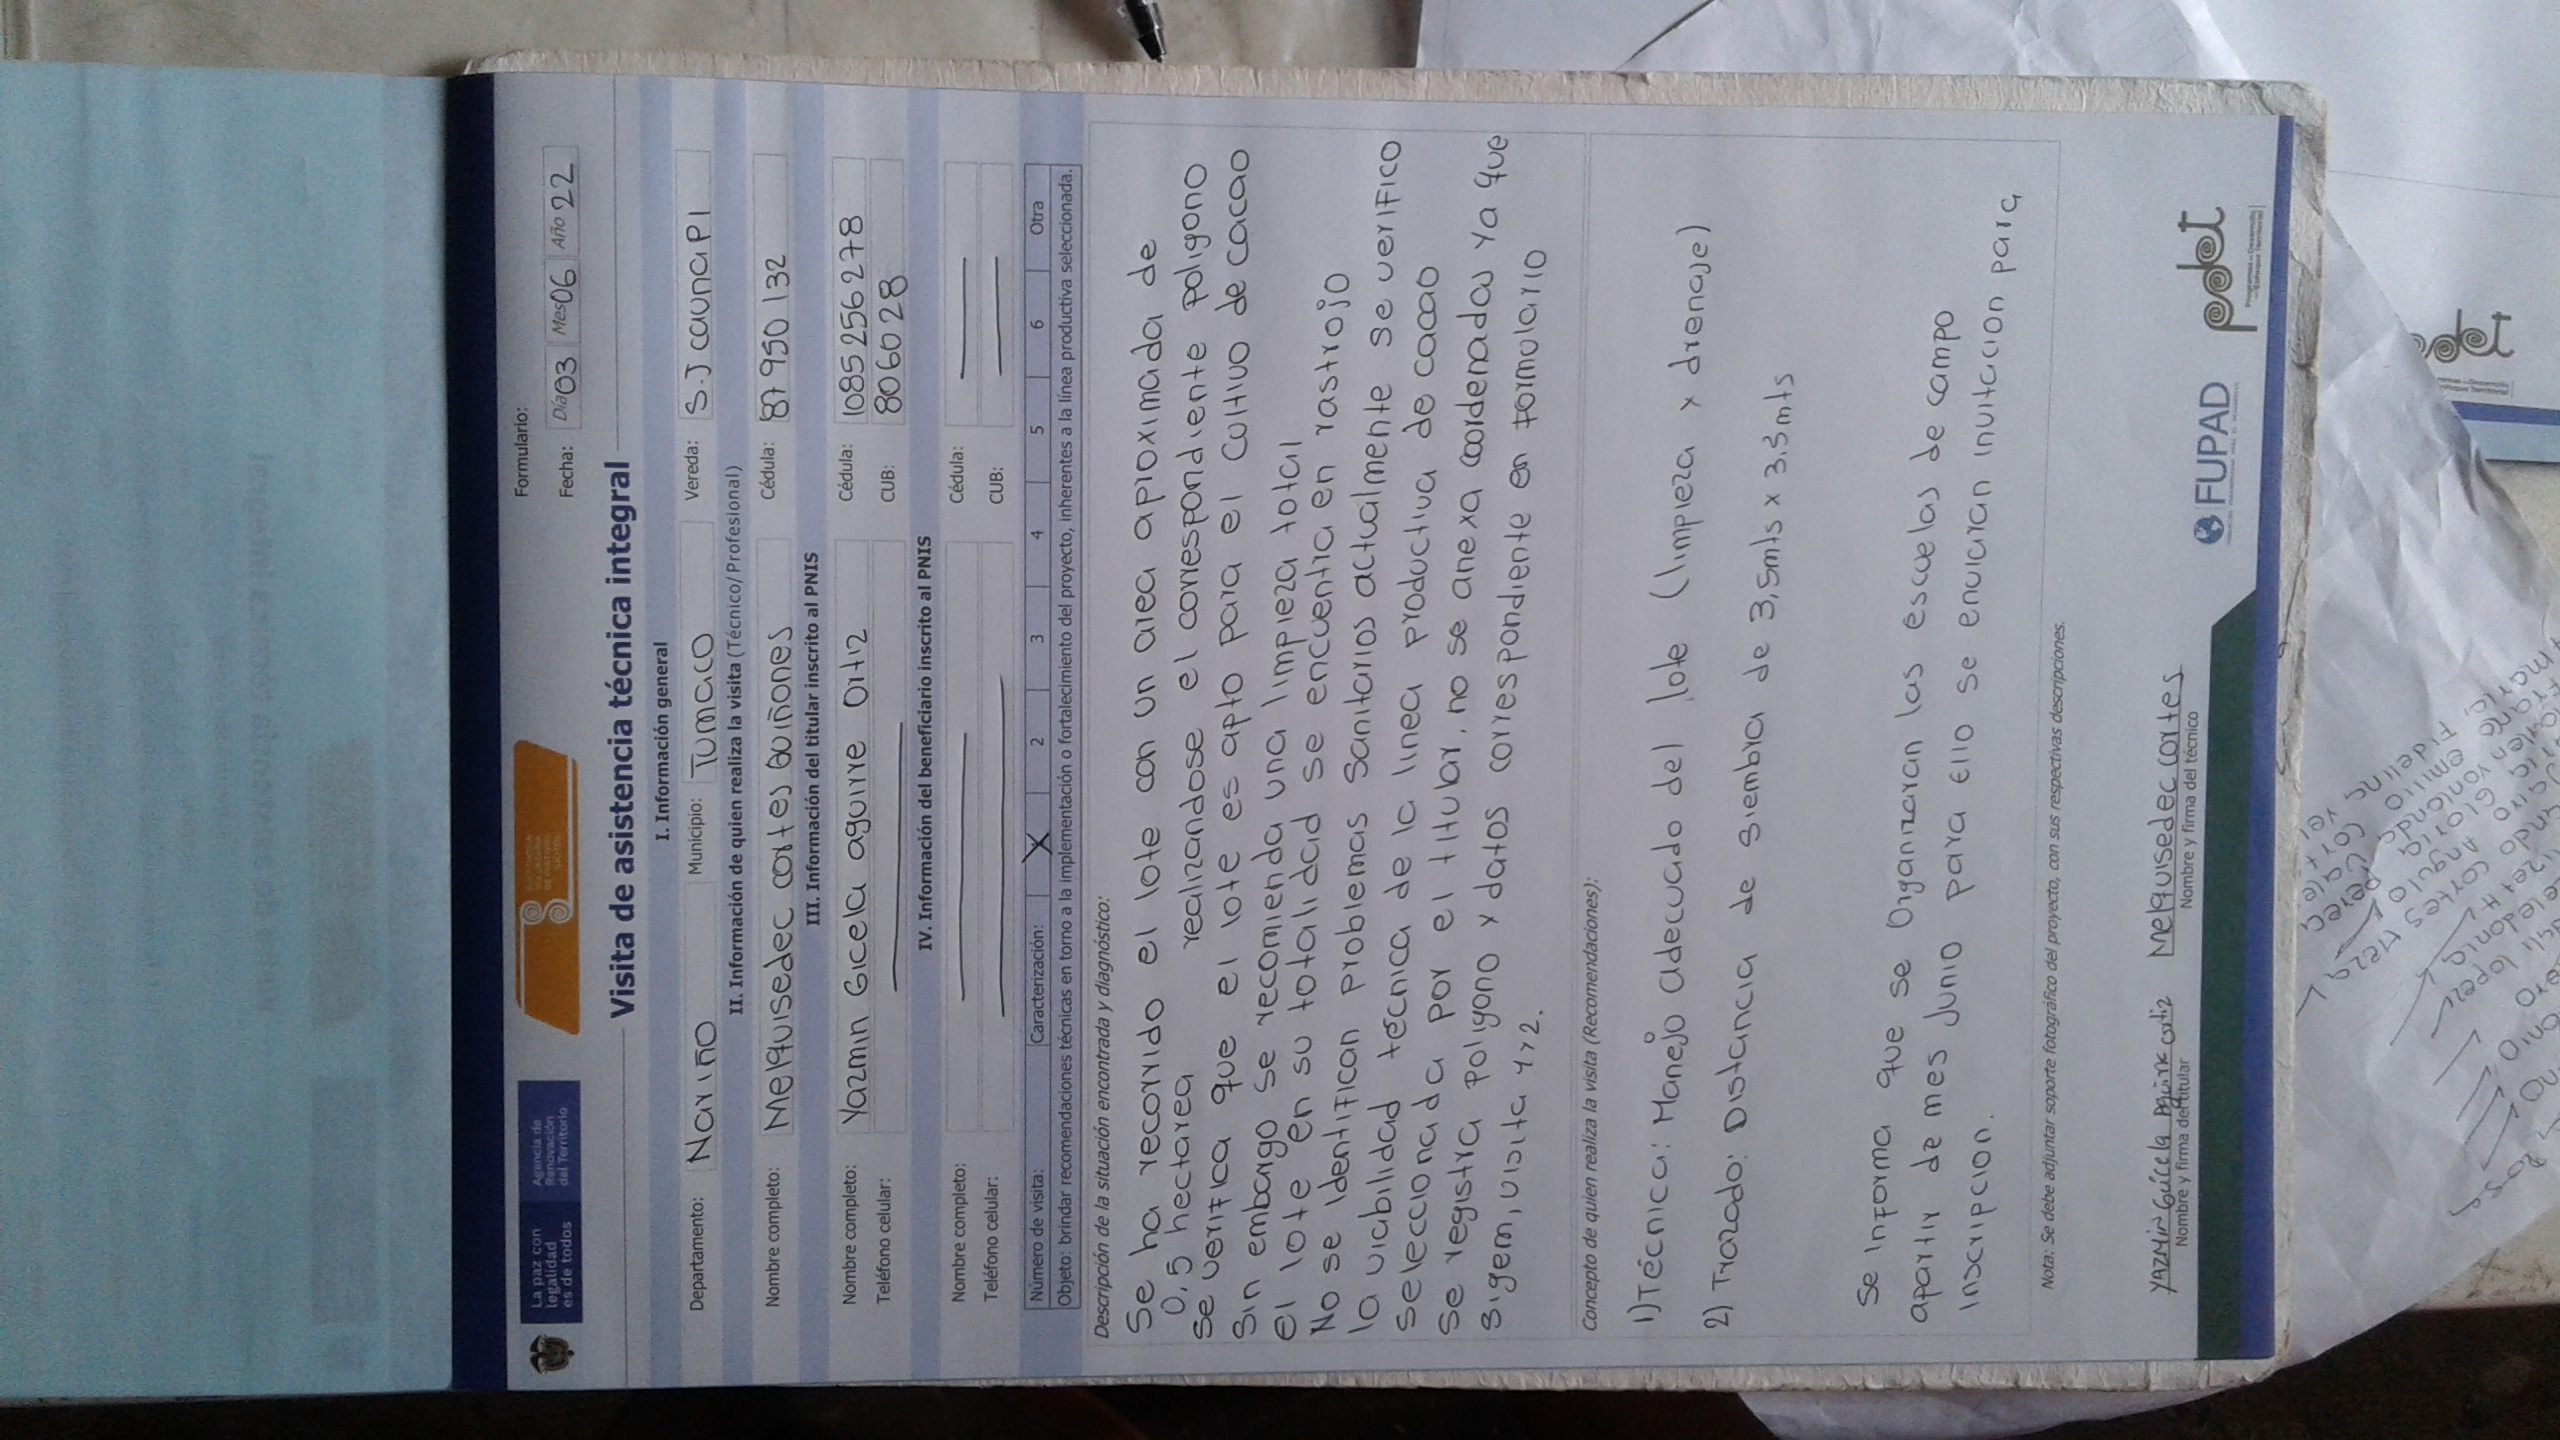 La paz con legalidad es de todos
Agencia de Renovación del Territorio
Formulario:
Fecha: Día 03 Mes 06 Año 22
Visita de asistencia técnica integral
I. Información general
Departamento: Nariño Municipio: Tumaco Vereda: S.J caunapI
II. Información de quien realiza la visita (Técnico/Profesional)
Nombre completo: Melquisedec cortes Quiñones Cédula: 87950132
III. Información del titular inscrito al PNIS
Nombre completo: Yazmin Gicela aguirre Ortiz Cédula: 1085256278
Teléfono celular: CUB: 8066028
IV. Información del beneficiario inscrito al PNIS
Nombre completo: Cédula:
Teléfono celular: CUB:
Número de visita: Caracterización: X 2 3 4 5 6 Otra
Objeto: brindar recomendaciones técnicas en torno a la implementación o fortalecimiento del proyecto, inherentes a la línea productiva seleccionada.
Descripción de la situación encontrada y diagnóstico:
Se ha recorrido el lote con un area aproximada de
0,5 hectarea realizandose el correspondiente poligono
se verifica que el lote es apto para el cultivo de cacao
Sin embargo se recomienda una limpieza total
el lote en su totalidad se encuentra en rastrojo
No se Identifican problemas sanitarios actualmente se verifico
la viabilidad técnica de la linea productiva de cacao
seleccionada por el titular, no se anexa cordenadas ya que
se registra poligono y datos correspondiente en formulario
sigem, visita 1 y 2.
Concepto de quien realiza la visita (Recomendaciones):
1) Técnica: Manejo adecuado del lote (limpieza y drenaje)
2) Trazado: Distancia de siembra de 3,5mts x 3.5mts
Se informa que se Organizaran las escuelas de campo
apartir de mes Junio para Ello se enviaran invitacion para
Inscripcion.
Nota: Se debe adjuntar soporte fotográfico del proyecto, con sus respectivas descripciones.
YAZMIN Guicela Aguirre ortiz Melquisedec cortes
Nombre y firma del titular Nombre y firma del técnico
FUPAD
pdet